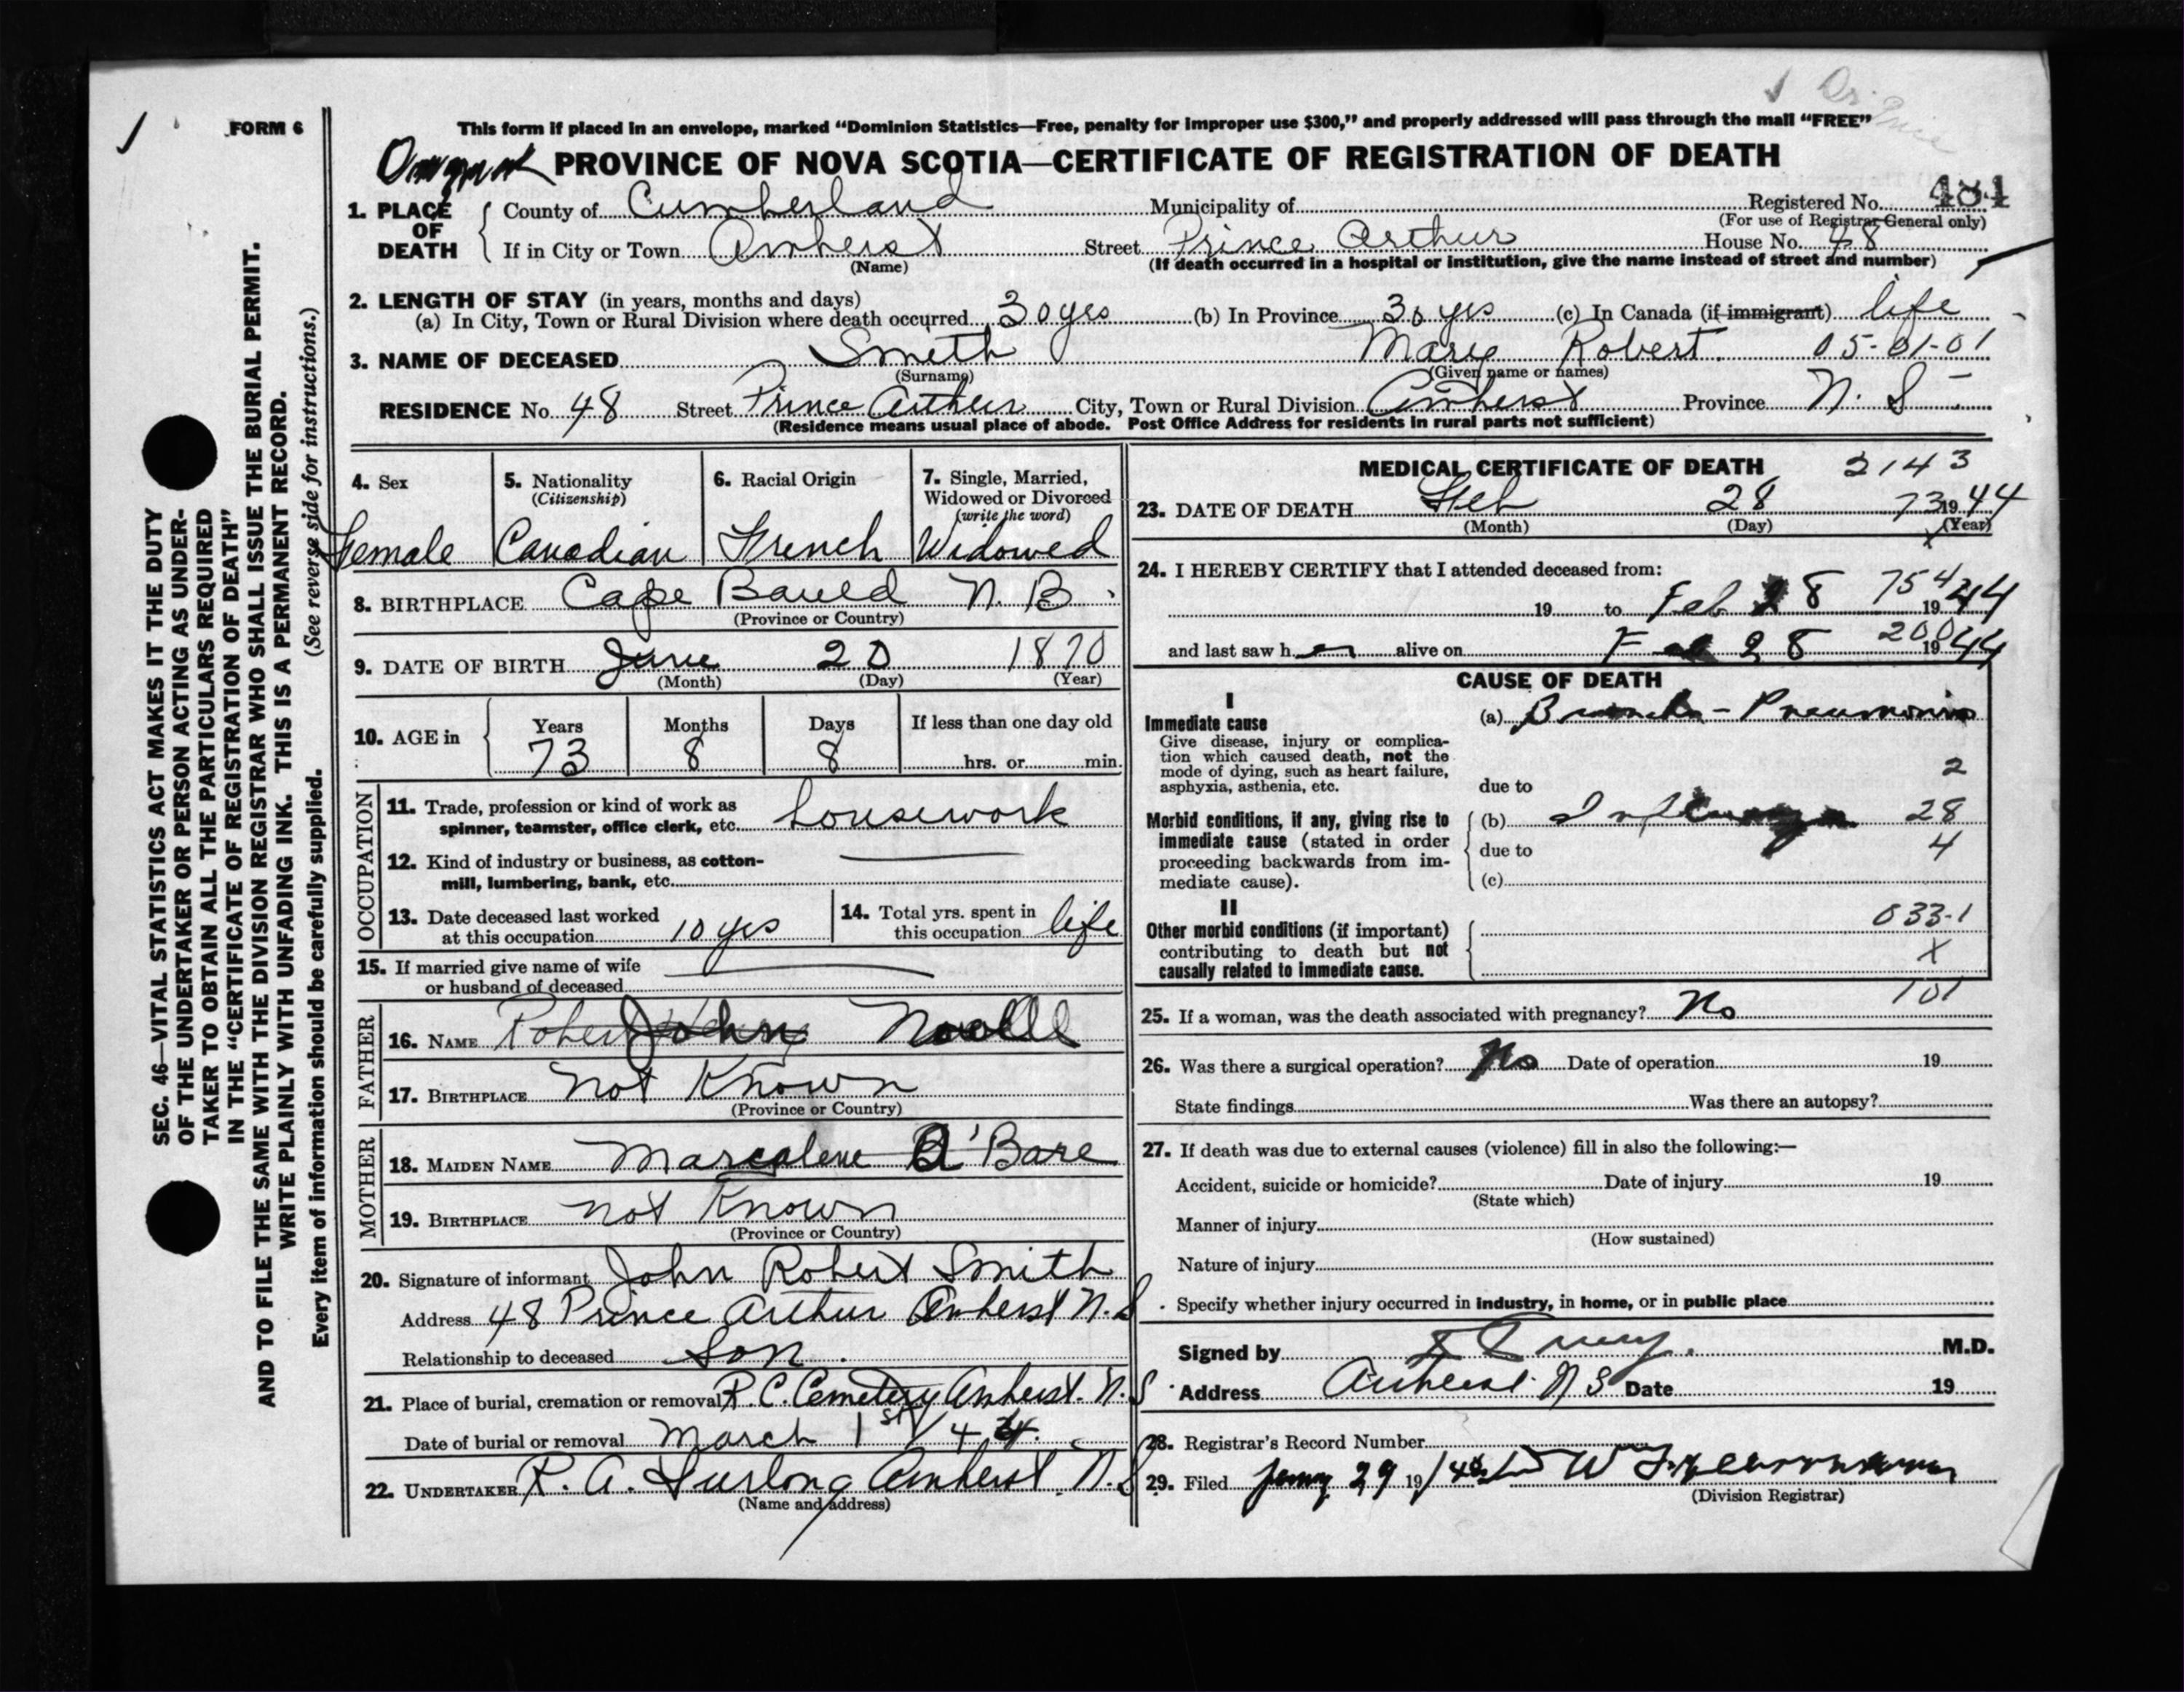 FORM 6
This form if placed in an envelope, marked “Dominion Statistics—Free, penalty for improper use $300,” and properly addressed will pass through the mail “FREE”
PROVINCE OF NOVA SCOTIA—CERTIFICATE OF REGISTRATION OF DEATH
1. PLACE OF DEATH
County of Cumberland Municipality of Registered No. 484
(For use of Registrar General only)
If in City or Town Amherst Street Prince Arthur House No. 48
(Name) (If death occurred in a hospital or institution, give the name instead of street and number)
2. LENGTH OF STAY (in years, months and days)
(a) In City, Town or Rural Division where death occurred 30 yrs (b) In Province 30 yrs (c) In Canada (if immigrant) life
3. NAME OF DECEASED Smith Marie Robert. 05-01-01
(Surname) (Given name or names)
RESIDENCE No. 48 Street Prince Arthur City, Town or Rural Division Amherst Province N. S
(Residence means usual place of abode. Post Office Address for residents in rural parts not sufficient)
4. Sex 5. Nationality (Citizenship) 6. Racial Origin 7. Single, Married, Widowed or Divorced (write the word)
Female Canadian French Widowed
8. BIRTHPLACE Cape Bauld N. B.
(Province or Country)
9. DATE OF BIRTH June 20 1870
(Month) (Day) (Year)
10. AGE in Years Months Days If less than one day old
73 8 8 hrs. or min.
OCCUPATION
11. Trade, profession or kind of work as spinner, teamster, office clerk, etc. housework
12. Kind of industry or business, as cotton-mill, lumbering, bank, etc.
13. Date deceased last worked at this occupation 10 yrs
14. Total yrs. spent in this occupation life
15. If married give name of wife or husband of deceased
FATHER
16. NAME John
17. BIRTHPLACE not Known
(Province or Country)
MOTHER
18. MAIDEN NAME Marcelene 'Bare
19. BIRTHPLACE not Known
(Province or Country)
20. Signature of informant John Robert Smith
Address 48 Prince Arthur Amherst N. S
Relationship to deceased Son.
21. Place of burial, cremation or removal R. C. Cemetery Amherst. N. S
Date of burial or removal March 1st/44.
22. UNDERTAKER R. A. Furlong Amherst. N. S
(Name and address)
MEDICAL CERTIFICATE OF DEATH 2143
23. DATE OF DEATH Feb 28 73 1944
(Month) (Day) (Year)
24. I HEREBY CERTIFY that I attended deceased from:
19 to Feb 28 754 1944
and last saw her alive on Feb 28 200 1944
CAUSE OF DEATH
I
Immediate cause
Give disease, injury or complication which caused death, not the mode of dying, such as heart failure, asphyxia, asthenia, etc.
(a) Broncho-Pneumonia
2
due to
Morbid conditions, if any, giving rise to immediate cause (stated in order proceeding backwards from immediate cause).
(b) Influenza 28
due to 4
(c)
II
Other morbid conditions (if important) contributing to death but not causally related to immediate cause.
033-1
X
101
25. If a woman, was the death associated with pregnancy? No
26. Was there a surgical operation? No Date of operation 19
State findings Was there an autopsy?
27. If death was due to external causes (violence) fill in also the following:—
Accident, suicide or homicide? Date of injury 19
(State which)
Manner of injury
(How sustained)
Nature of injury
Specify whether injury occurred in industry, in home, or in public place
Signed by M.D.
Address Amherst N S Date 19
28. Registrar's Record Number
29. Filed 29 19
(Division Registrar)
SEC. 46—VITAL STATISTICS ACT MAKES IT THE DUTY
OF THE UNDERTAKER OR PERSON ACTING AS UNDER-
TAKER TO OBTAIN ALL THE PARTICULARS REQUIRED
IN THE “CERTIFICATE OF REGISTRATION OF DEATH”
AND TO FILE THE SAME WITH THE DIVISION REGISTRAR WHO SHALL ISSUE THE BURIAL PERMIT.
WRITE PLAINLY WITH UNFADING INK. THIS IS A PERMANENT RECORD.
Every item of information should be carefully supplied. (See reverse side for instructions.)